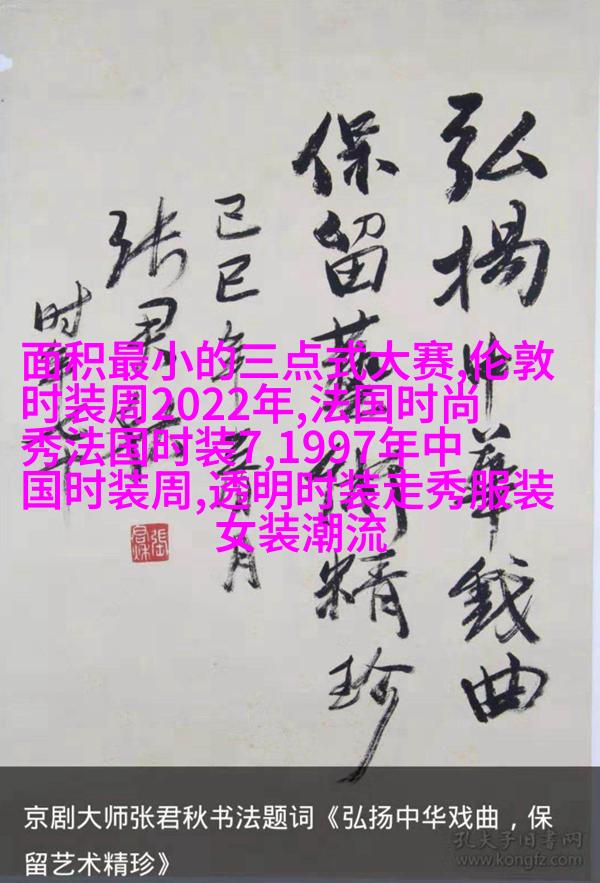 弘揚中華戲曲
保留藝術精珍
己巳年月
张君秋
时年七十
張君秋
面积最小的三点式大赛,伦敦
时装周2022年,法国时尚
秀法国时装7,1997年中
国时装周,透明时装走秀服装
女装潮流
京剧大师张君秋书法题词《弘扬中华戏曲，保
留艺术精珍》
孔夫子旧书网
www.kongfz.com